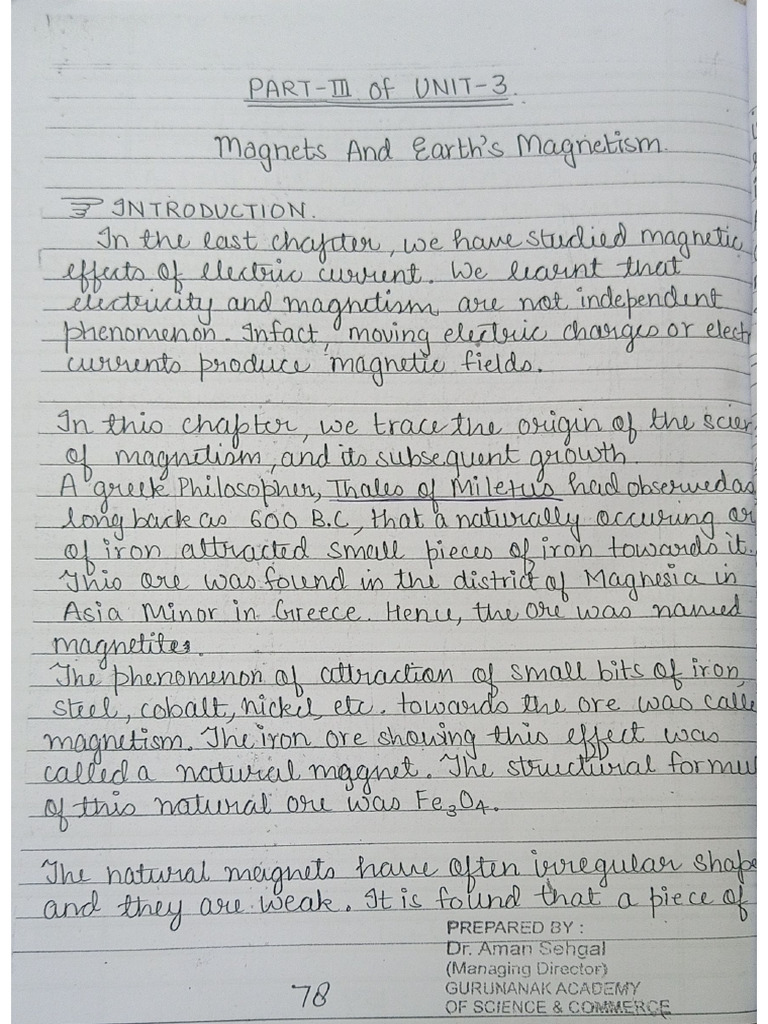 PART-III of UNIT-3.
Magnets And Earth's Magnetism.
INTRODUCTION.
In the last chapter, we have studied magnetic
effects of electric current. We learnt that
electricity and magnetism are not independent
phenomenon. Infact, moving electric charges or elect
currents produce magnetic fields.
In this chapter, we trace the origin of the scien
of magnetism, and its subsequent growth.
A greek Philosopher, Thales of Miletus had observed as
long back as 600 B.C, that a naturally occuring or
of iron attracted small pieces of iron towards it.
This ore was found in the district of Magnesia in
Asia Minor in Greece. Hence, the ore was named
magnetites.
The phenomenon of attraction of small bits of iron,
steel, cobalt, nickel, etc. towards the ore was calle
magnetism. The iron ore showing this effect was
called a natural magnet. The structural formu
of this natural ore was Fe3O4.
The natural magnets have often irregular shape
and they are weak. It is found that a piece of
PREPARED BY :
Dr. Aman Sehgal
(Managing Director)
GURUNANAK ACADEMY
OF SCIENCE & COMMERCE
78